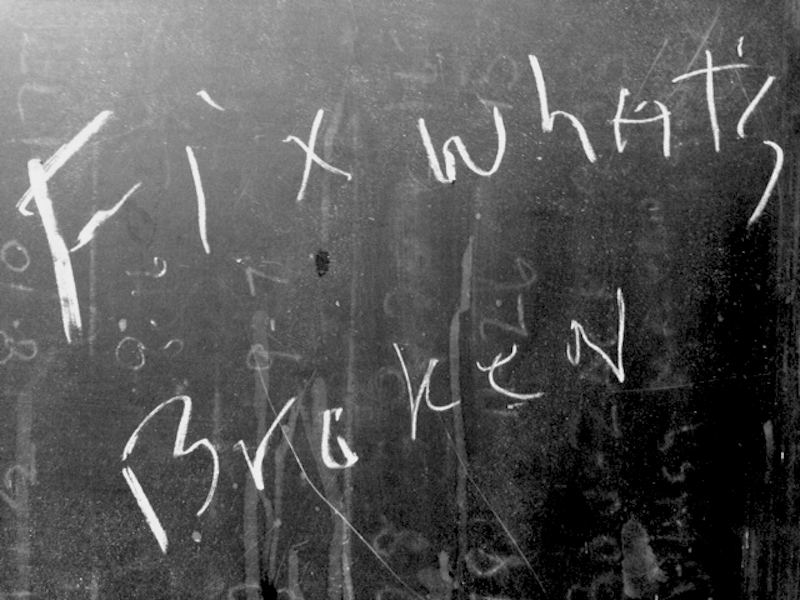 Fix what's
BroKeN